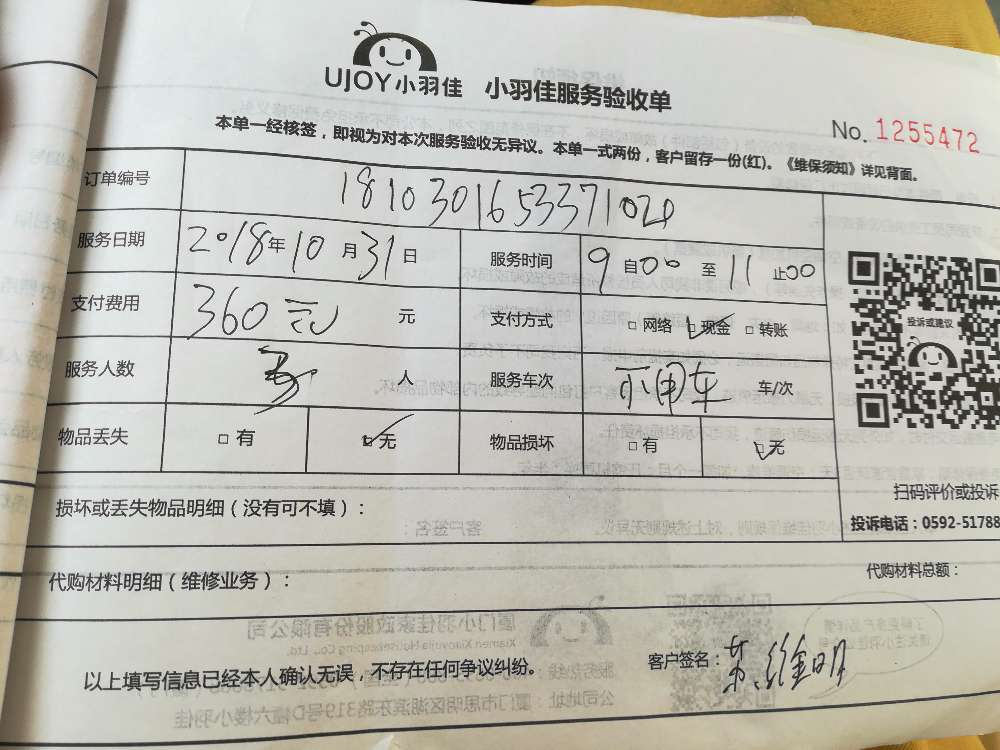 UJOY小羽佳 小羽佳服务验收单
No. 1255472
本单一经核签，即视为对本次服务验收无异议。本单一式两份，客户留存一份(红)。《维保须知》详见背面。
订单编号 181030165337102
服务日期 2018年10月31日 服务时间 9自00至11止00
支付费用 360元 元 支付方式 □网络 ☑现金 □转账
服务人数 人 服务车次 不用车 车/次
物品丢失 □有 ☑无 物品损坏 □有 ☑无
投诉或建议
扫码评价或投诉
投诉电话：0592-51788
损坏或丢失物品明细（没有可不填）：
代购材料明细（维修业务）： 代购材料总额：
以上填写信息已经本人确认无误，不存在任何争议纠纷。 客户签名：